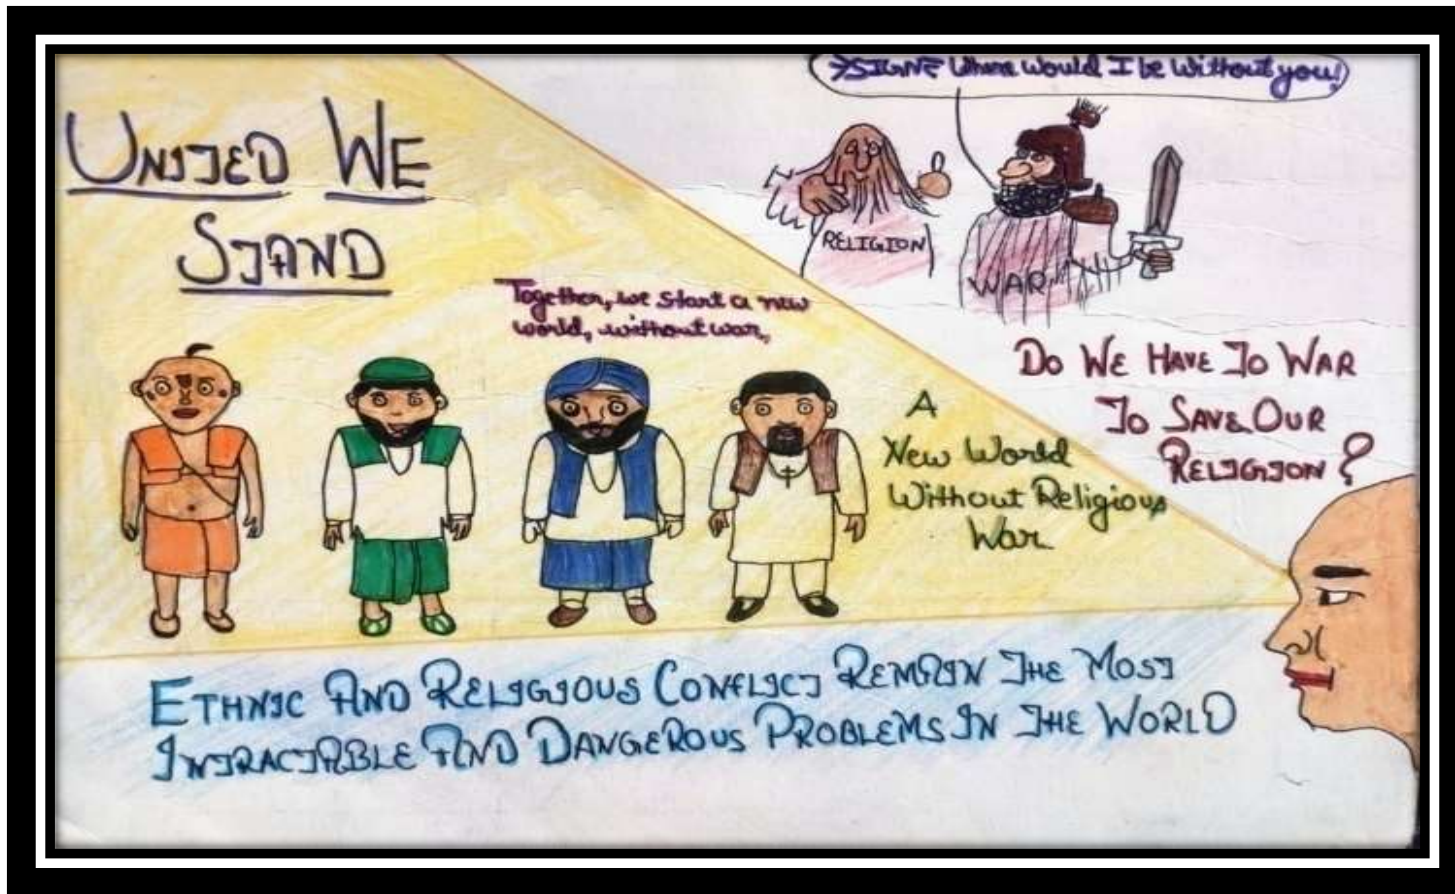 UNITED WE
STAND
Where Would I be Without you!
RELIGION
WAR
Together, we start a new
world, without war,
DO WE HAVE TO WAR
TO SAVE OUR
RELIGION?
A
New World
Without Religious
War
ETHNIC AND RELIGIOUS CONFLICT REMAIN THE MOST
INTRACTABLE AND DANGEROUS PROBLEMS IN THE WORLD